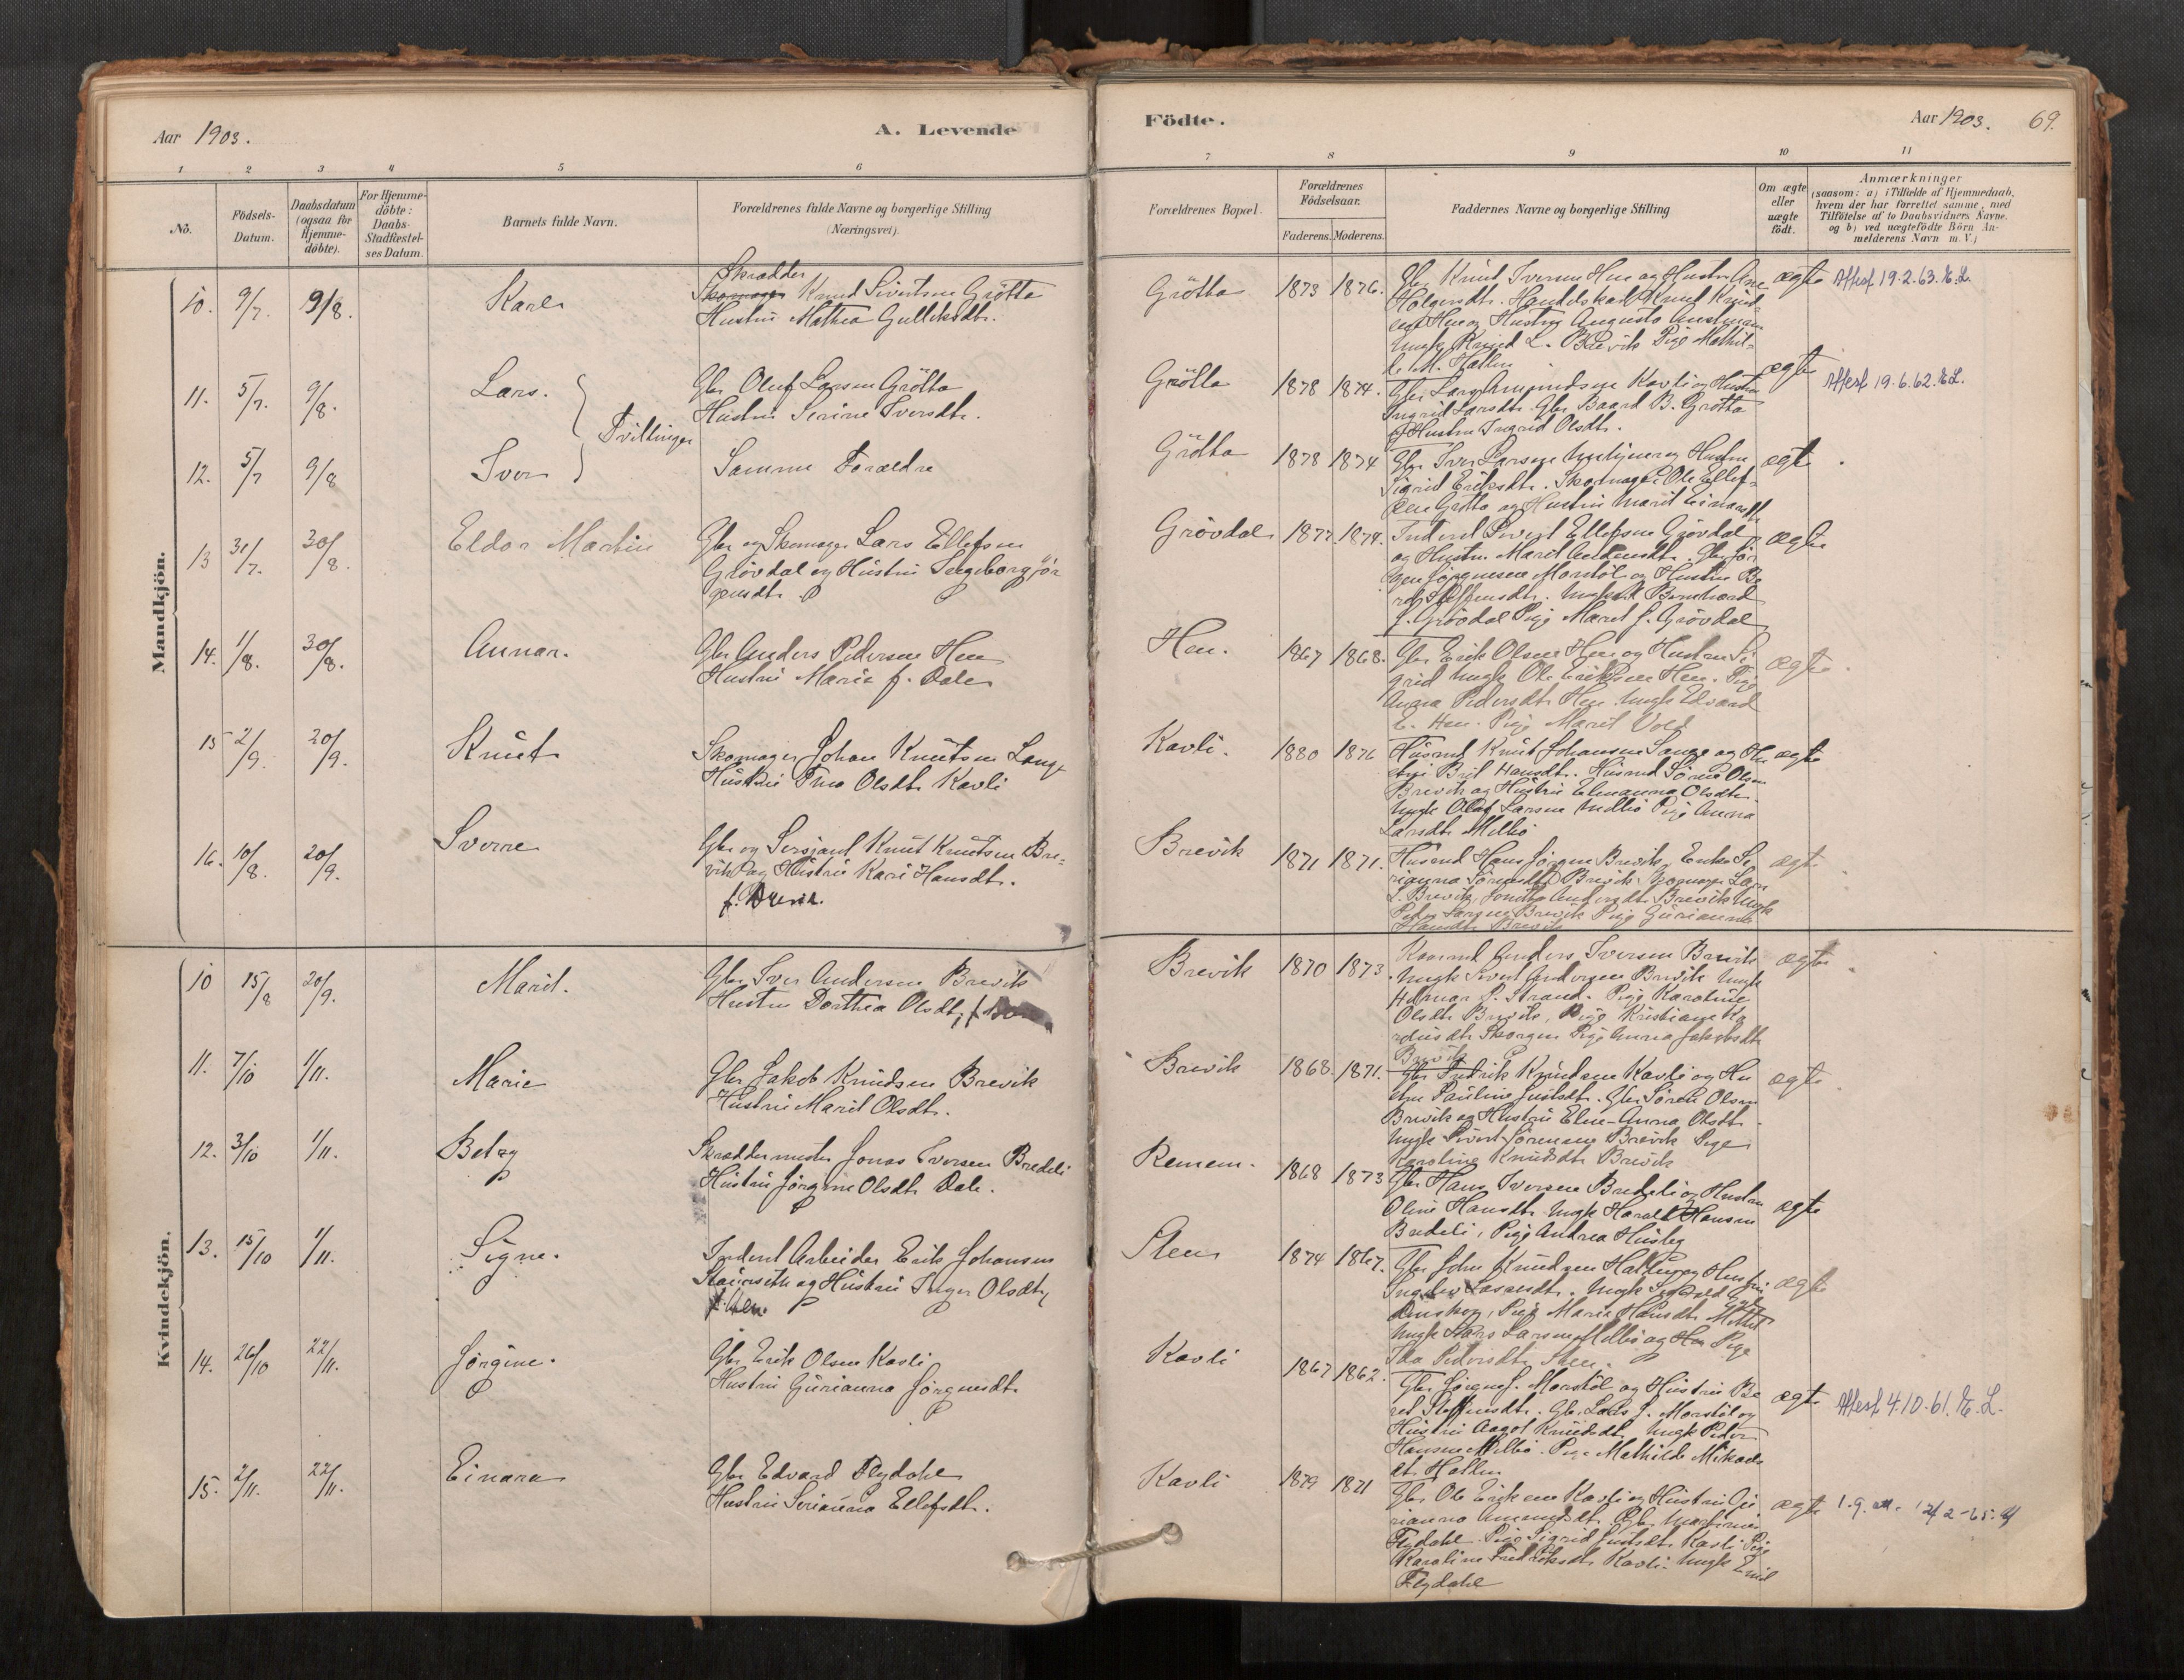 Aar 1903.
A. Levende
Födte.
Aar 1903. 69.
1 2 3 4 5 6 7 8 9 10 11
No.
Födsels-
Datum.
Daabsdatum
(ogsaa for
Hjemme-
döbte).
For Hjemme-
döbte:
Daabs-
Stadfæstel-
ses Datum.
Barnets fulde Navn.
Forældrenes fulde Navne og borgerlige Stilling
(Næringsvei).
Forældrenes Bopæl.
Forældrenes
Födselsaar.
Faderens. Moderens.
Faddernes Navne og borgerlige Stilling
Om ægte
eller
uægte
födt.
Anmærkninger
(saasom: a) i Tilfælde af Hjemmedaab,
hvem der har forrettet samme, med
Tilföielse af to Daabsvidners Navne.
og b) ved uægtefödte Börn An-
melderens Navn m.V.)
Mandkjön.
10. 9/7. 9/8. Karl
Skrædder
Skomager Knud Sivertsen Grötta
Hustru Mathea Gulleksdtr.
Grötta 1873 1876.
Gbr Knut Iversen Hen og Hustr Ane
Holgersdtr. Handelskarl Knut Knud
sen Hen og Hustru Augusta
Ungk Knud L. Brevik Pige Mathil-
de M. Hatlen
ægte Attest 19.2.63. E.L.
11. 5/7. 9/8. Lars.
Tvillinger
Gbr Oluf Larsen Grötta
Hustru Serine Iversdtr.
Grötta 1878 1874.
Gbr Lars Amundsen Kavli og Hustru
Ingrid Larsdtr. Gbr Baard B. Grötta
og Hustru Ingrid Olsdtr.
ægte Attest 19.6.62. E.L.
12. 5/7 9/8 Iver
Samme Forældre
Grötta 1878 1874
Gbr Iver Larsen og Hustru
Sigrid Eriksdtr. Skomager Ole Ellef-
sen Grötta og Hustru Marit
ægte
13 31/7. 30/8. Eldor Martin
Gbr og Skomager Lars Ellefsen
Grövdal og Hustru Ingeborg Jör
gensdtr.
Grövdal 1877. 1874.
Inderst Sivert Ellefsen Grövdal
og Hustru Marit . Gbr Jör
gen Jörgensen Morstöl og Hustru Be
ret Steffensdtr. Ungkarl Bernhard
J. Grövdal Pige Marit J. Grövdal
ægte
14. 1/8. 30/8. Annar.
Gbr Anders Pedersen Hen
Hustru Marie f. Dale
Hen. 1867 1868.
Gbr Erik Olsen Hen og Hustru Si
grid Ungk Ole Eriksen Hen. Pige
Anna Pedersdtr Hen Ungk Edvard
E. Hen. Pige Marit Vold
ægte
15 2/9. 20/9. Knut
Skomager Johan Knutsen Lange
Hustru Olsdtr Kavli
Kavli. 1880 1876
Husmd Knut Johansen Lange og Hu
stru Brit Hansdtr. Husmd Sören Olsen
Brevik og Hustru Elenanna Olsdtr.
Ungk Olaf Larsen Melbö Pige Anna
Larsdtr Melbö
ægte
16. 10/8. 20/9. Sverre
Gbr og Sersjant Knut Knutsen Bre-
vik og Hustru Kari Hansdtr.
f. Brevik.
Brevik 1871 1871.
Husmd Hans Jörgen Brevik, Enke Se
rianna Sörensdtr Brevik Skomager Lars
L. Brevik, Andersdtr Brevik Ungk
Peder Larsen Brevik Pige Gurianna
Hansdtr Brevik
ægte
Kvindekjön.
10 15/8 20/9. Marit.
Gbr Iver Andersen Brevik
Hustru Dorthea Olsdtr, f.
Brevik 1870 1873.
Kaarmd Anders Iversen Brevik
Ungk Sivert Andersen Brevik Ungk
Hilmar P. Strand. Pige Karoline
Olsdtr Brevik, Pige Kristiane Ka
rdusdtr Skorgen Pige Anna Jakobsdtr
Brevik
ægte
11. 7/10 1/11. Marie
Gbr Jakob Knudsen Brevik
Hustru Marit Olsdtr.
Brevik 1868. 1871.
Gbr Fredrik Knudsen Kavli og Hu
stru Pauline Justsdtr. Gbr Sören Olsen
Brevik og Hustru Elen-Anna Olsdtr.
Ungk Sivert Sörensen Brevik Pige
Karoline Knudsdtr Brevik
ægte
12. 3/10 1/11. Betzy
Skræddermester Jonas Iversen Bredeli
Hustru Jörgine Olsdtr Dale.
Remem. 1868 1873
Gbr Hans Iversen Bredeli og Hustru
Oline Hansdtr. Ungk Harald Hansen
Bredeli, Pige Andrea Husby
ægte
13. 15/10 1/11. Signe.
Inderst Arbeider Erik Johansen
Staurseth og Hustru Inger Olsdtr,
f. Hen.
Sten 1874 1867.
Gbr John Knudsen Hatlen og Hustru
Larsdtr. Ungk
, Pige Marie Hansdtr Melbö
Ungk Hans Larsen Melbö og Pige
Ida Pedersdtr Sten.
ægte
14. 26/10 22/11. Jörgine.
Gbr Erik Olsen Kavli
Hustru Gurianna Jörgensdtr
Kavli 1867 1862.
Gbr Jörgen J. Morstöl og Hustru Be
ret Steffensdtr. Gbr Lars J. Morstöl og
Hustru Aagot Knudsdtr Ungk Peder
Hansen Melbö. Pige Mathilde Mikaels
dtr Hatlen
ægte Attest 4.10.61. E.L.
15. 2/11. 22/11. Einara
Gbr Edvard Flydahl
Hustru Serianna Ellefsdtr.
Kavli 1879 1871
Gbr Ole Eriksen Kavli og Hustru Gu
rianna Amundsdtr. Gbr Martinus
Flydahl. Pige Sigrid Justsdtr Kavli Pige
Karoline Fredriksdtr Kavli. Ungk Emil
Flydahl
ægte 1.g. 12/2-65.